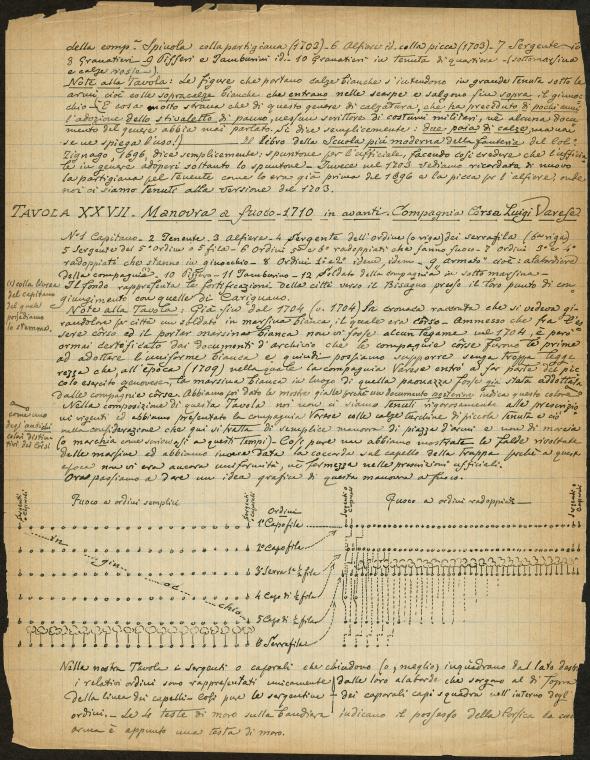 della comp.ª Spinola colla partigiana (1702) - 6 Alfiere id. colla picca (1703) - 7 Sergente
8 Granatieri - 9 Pifferi e Tamburini id. - 10 Granatieri in tenuta di quartiere - (sottomarsina
e calze rosse).
Note alla Tavola: Le figure che portano calze bianche s'intendono in grande tenuta sotto le
armi cioè colle sopracalze bianche che entrano nelle scarpe e salgono fin sopra il ginoc-
chio - È cosa molto strana che di questo genere di calzatura, che ha preceduto di pochi anni
l'adozione dello stivaletto di panno, nessun scrittore di costumi militari, nè alcuna docu-
mento del genere abbia mai parlato. Si dice semplicemente: due paia di calze, ma non
se ne spiega l'uso! - Il libro della Scuola più moderna della fanteria del Col.
Zignago, 1696, dice semplicemente: spuntone per l'ufficiale, facendo così credere che l'ufficia-
le in genere adoperi soltanto lo spuntone - Invece nel 1703 vediamo ricordata di nuovo
la partigiana pel tenente come lo era già prima del 1696 e la picca per l'alfiere, onde
noi ci siamo tenuti alla versione del 1703.
TAVOLA XXVII - Manovra a fuoco - 1710 in avanti - Compagnia Corsa Luigi Varese
N° 1 Capitano - 2 Tenente - 3 Alfiere - 4 Sergente dell'ordine (o riga) dei serrafila (6ª riga)
5 Sergente del 5° ordine o 5 fila - 6 Ordini 5° e 6° radoppiati che fanno fuoco - 7 Ordini 3° e 4°
radoppiati che stanno in ginocchio - 8 Ordini 1° e 2° idem, idem - 9 armato cioè: alabardiere
della compagnia - 10 Piffero - 11 Tamburino - 12 Soldato della compagnia in sotto marsina -
Il fondo rappresenta le fortificazioni della città verso il Bisagno presso il loro punto di con-
giungimento con quelle di Carignano.
(1) colla livrea
del capitano
del quale
portavano
lo stemma.
Note alla Tavola: Già fin dal 1704 (v. 1704) la cronaca racconta che si vedeva gi-
randolare per città un soldato in marsina bianca, il quale era corso - ammesso che fra l'es-
sere corso ed il portar marsina bianca non vi fosse alcun legame nel 1704, è però
ormai certificato dai documenti d'archivio che le compagnie corse furono le prime
ad adottare l'uniforme bianca e quindi possiamo supporre senza troppa legge-
rezza che all'epoca (1709) nella quale la compagnia Varese entrò a far parte del pic-
colo esercito genovese, la marsina bianca in luogo di quella paonazza fosse già stata adottata
dalle compagnie corse. Abbiamo poi dato le mostre gialle perchè un documento posteriore indica questo colore
come uno
degli antichi
colori distin-
tivi dei Corsi
Nella composizione di questa Tavola noi non ci siamo tenuti rigorosamente alle prescrizio-
ni vigenti ed abbiamo presentato la compagnia Varese colle calze turchine di piccola tenuta e ciò
nella considerazione che qui si tratta di semplice manovra di piazza d'armi e non di marcia
(o marchia come scrivevasi a questi tempi) - Così pure non abbiamo mostrate le falde rivoltate
delle marsine ed abbiamo invece data la coccarda sul cappello della truppa perchè a quest'
epoca non vi era ancora uniformità, nè fermezza nelle prescrizioni ufficiali.
Ora passiamo a dare un'idea grafica di questa manovra a fuoco.
Fuoco a ordini semplici
Fuoco a ordini radoppiati
Sergenti
o Caporali
Sergenti
o Caporali
Sergenti
o Caporali
Sergenti
o Caporali
Ordini
1° Capofila
2° Capofila
3° Serra ½ fila
4 Capo di ½ fila
5 Capo di ½ fila
6 Serrafila
in gin oc chio
Nella nostra Tavola i sergenti o caporali che chiudono (o, meglio, inquadrano dal lato destro
i relativi ordini sono rappresentati unicamente dalle loro alabarde che sorgono al di sopra
della linea dei cappelli - Così pure le sergentine dei caporali capi squadra nell'interno degli
ordini - Le 4 teste di moro sulla bandiera indicano il possesso della Corsica la cui
arma è appunto una testa di moro.